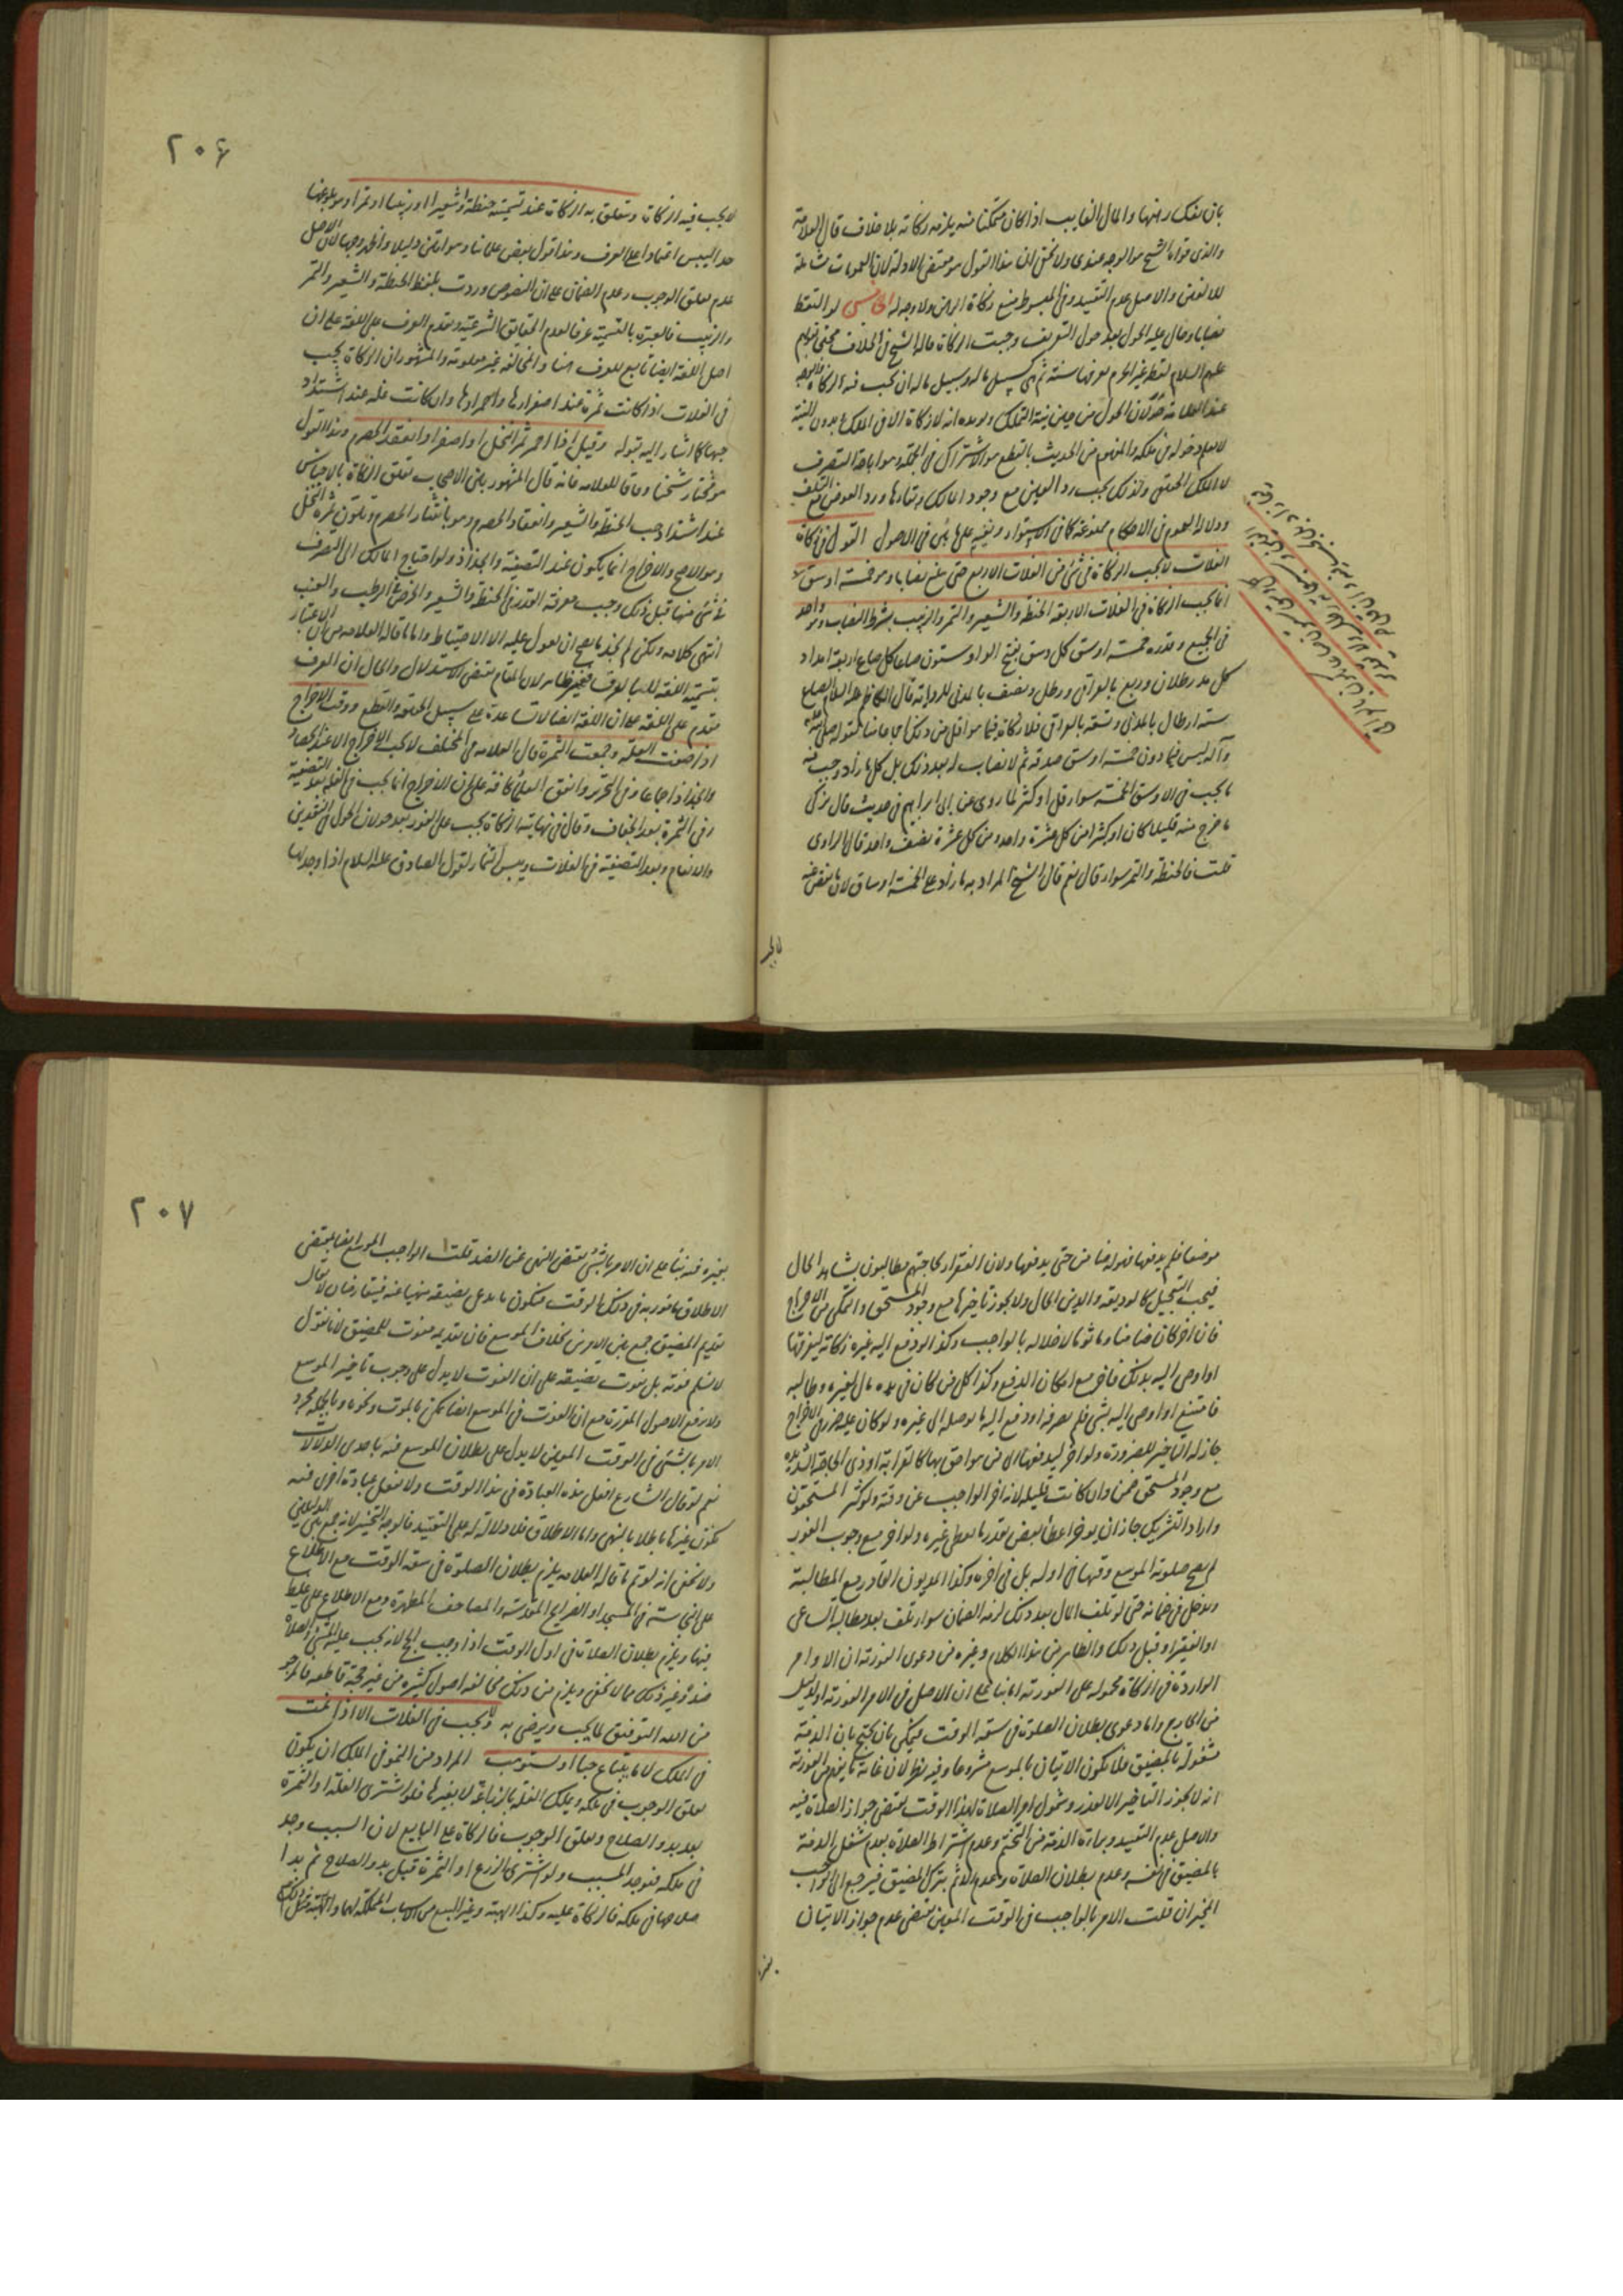 بان يفتك رهنها والمال الغايب اذا كان متمكنا منه يلزمه زكاته بلا خلاف قال العلامة
والذى قواه الشيخ هو الوجه عندى ولا يخفى ان هذا القول هو مقتضى الادلة لان العمومات شاملة
للانعين والاصل عدم التقييد وفى المبسوط منع زكاة الرهن ولا وجه له الخامس لو التقط
نصابا وحال عليه الحول بعد حول التعريف وجبت الزكاة قاله الشيخ فى الخلاف محتجا بقولهم
عليهم السلام لقطة غير الحرم يعرفها سنة ثم هى كسبيل ماله وسبيل ماله ان يجب فيه الزكاة
عند العلامة ان الحول من حين نية التملك انه لا زكاة الا فى الملك بدون النية
لا يعلم دخوله فى ملكه والمفهوم من الحديث بالقطع هو الاشتراك فى الجملة وهو اباحة التصرف
لا الملك الحقيقى ولذلك يجب رد العين مع وجود المالك وبقاءها ورد العوض مع التلف
ودلالة العموم فى الاحكام ممنوعة كما فى الاستواء وغيره على ما بين فى الاصول القول فى زكاة
الغلات لا يجب الزكاة فى شئ من الغلات الاربع حتى يبلغ نصابا وهو خمسة اوسق
انما يجب الزكاة فى الغلات الاربعة الحنطة والشعير والتمر والزبيب بشرط النصاب وهو واحد
فى الجميع وقدره خمسة اوسق كل وسق بفتح الواو ستون صاعا كل صاع اربعة امداد
كل مد رطلان وربع بالعراقى ورطل ونصف بالمدنى للرواية قال الكاظم عليه السلام الصاع
ستة ارطال بالمدنى وتسعة بالعراقى فلا زكاة فيما هو اقل من ذلك اجماعا منا لقوله صلى الله عليه
وآله ليس فيما دون خمسة اوسق صدقة ثم لا نصاب له بعد ذلك بل كل ما زاد وجب فيه
ما يجب فى الاوسق الخمسة سواء قل او كثر لما روى عن ابى ابراهيم فى حديث قال يزكى
ما خرج منه قليلا كان او كثيرا من كل عشرة واحد ومن كل عشرة نصف واحد قال الراوى
قلت فالحنطة والتمر سواء قال نعم قال الشيخ المراد به ما زاد على الخمسة اوساق لان ما نقص عنه
لا يجب
٢٠۶
لا يجب فيه الزكاة ويتعلق به الزكاة عند تسميته حنطة او شعيرا او زبيبا او تمرا وهو بلوغها
حد اليبس اعتمادا على العرف وهذا قول بعض علمائنا وهو امتن دليلا واظهر وجها لان الاصل
عدم تعلق الوجوب وعدم الضمان على ان النصوص وردت بلفظ الحنطة والشعير والتمر
والزبيب فالعبرة بالتسمية عرفا لعدم الحقايق الشرعية وتقدم العرف على اللغة على ان
اصل اللغة ايضا تابع للعرف هنا والمخالفة غير معلومة والمشهور ان الزكاة يجب
فى الغلات اذا كانت ثمرة عند اصفرارها واحمرارها وان كانت غلة عند اشتداد
حبها كما اشار اليه بقوله وقيل اذا احمر ثمر النخل او اصفر او انعقد الحصرم وهذا القول
هو مختار شيخنا وفاقا للعلامة فانه قال المشهور بين الاصحاب تعلق الزكاة بالاجناس
عند اشتداد حب الحنطة والشعير وانعقاد الحصرم وهو بانتشار الحصرم وتلون ثمرة النخل
وهو الاصح والاخراج انما يكون عند التصفية والجذاذ ولو احتاج المالك الى التصرف
فى شئ منها قبل ذلك وجب معرفة القدر فى الحنطة والشعير والخرص فى الرطب والعنب
انتهى كلامه ولكن لم نجد ما يصح ان يعول عليه الا الاحتياط واما ما قاله العلامة من ان الاعتبار
بتسمية اللغة لا بالعرف فغير ظاهر لان المقام يقتضى الاستدلال والحال ان العرف
مقدم على اللغة على ان اللغة ايضا لا تساعده على سبيل الحقيقة والقطع ووقت الاخراج
اذا صفت الغلة وجمعت الثمرة قال العلامة فى المختلف لا يجب الاخراج الا عند الحصاد
والجذاذ اجماعا وفى التحرير واتفق العلماء كافة على ان الاخراج انما يجب فى الغلة بعد التصفية
وفى الثمرة بعد الجفاف وقال فى نهايته الزكاة يجب على الفور بعد حولان الحول فى النقدين
والانعام وبعد التصفية فى الغلات ويبس الثمار لقول الصادق عليه السلام اذا وجد لها
موضعا فلم يدفعها فهو لها ضامن حتى يدفعها ولان الفقراء لحاجتهم مطالبون بشاهد الحال
فيجب التعجيل كالوديعة والدين الحال ولا يجوز تاخيرها مع وجود المستحق والتمكن من الاخراج
فان اخر كان ضامنا وماثوما لاخلاله بالواجب وكذا لو دفع اليه غيره زكاته ليفرقها
او اوصى اليه بذلك فاخر مع امكان الدفع وكذا كل من كان فى يده مال لغيره وطالبه
فامتنع او اوصى اليه بشئ فلم يصرفه او دفع اليه ما يوصله الى غيره ولو كان عليه ضرر فى الاخراج
جاز له التاخير للضرورة ولو اخر ليدفعها الى من هو احق بها كالقرابة او ذى الحاجة الشديدة
مع وجود المستحق ضمن وان كانت قليلة لانه اخر الواجب عن وقته ولو كثر المستحقون
واراد التشريك جاز ان يؤخر اعطاء بعض بقدر ما يعطى غيره ولو اخر مع وجوب الفور
لم يصح صلوته الموسع وقتها فى اوله بل فى اخره وكذا المديون القادر مع المطالبة
ويدخل فى ضمانه حتى لو تلف المال بعد ذلك لزمه الضمان سواء تلف بعد مطالبة الساعى
او الفقير او قبل ذلك والظاهر من هذا الكلام وغيره من دعوى الفورية ان الاوامر
الواردة فى الزكاة محمولة على الفورية اما بناء على ان الاصل فى الامر الفورية او لدليل
من الخارج واما دعوى بطلان الصلوة فى سعة الوقت فيمكن بان يحتج بان الذمة
مشغولة بالمضيق فلا يكون الاتيان بالموسع مشروعا وفيه نظر لان غاية ما يلزم من الفورية
انه لا يجوز التاخير الا لعذر وشمول امر الصلاة لهذا الوقت يقتضى جواز الصلاة فيه
والاصل عدم التقييد وبراءة الذمة من التحتم وعدم اشتراط الصلاة بعدم شغل الذمة
بالمضيق فى نفسه وعدم بطلان الصلاة وعدم الاثم بترك المضيق فيرجع الى الواجب
المخير ان قلت الامر بالواجب فى الوقت المعين يقتضى عدم جواز الاتيان
بغيره
٢٠٧
بغيره فيه بناء على ان الامر بالشئ يقتضى النهى عن الضد قلت الواجب الموسع ايضا بمقتضى
الاطلاق مامور به فى ذلك الوقت فيكون ما يدعى تضيقه منهيا عنه فيتعارضان لا يقال
تقديم المضيق جمع بين الامرين بخلاف الموسع فان تقديمه مفوت للمضيق لانا نقول
لا نسلم فوته بل نفوت تضيقه على ان الفوت لا يدل على وجوب تاخير الموسع
ولا يرفع الاصول المقررة مع ان الفوت فى الموسع ايضا ممكن بالموت ونحوه وبالجملة مجرد
الامر بالشئ فى الوقت المعين لا يدل على بطلان الموسع فيه باحدى الدلالات
نعم لو قال الشارع افعل هذه العبادة فى هذا الوقت ولا تفعل عبادة اخرى فيه
يكون غيرها باطلا بالنهى واما الاطلاق فلا دلالة له على التقييد فالوجه التخيير لانه جمع بين الدليلين
ولا يخفى انه لو تم ما قاله العلامة يلزم بطلان الصلوة فى سعة الوقت مع الاطلاع
على النجاسة فى المسجد او الضرايح المقدسة والمصاحف المطهرة ومع الاطلاع على غلط
فيها ويلزم بطلان الصلاة فى اول الوقت اذا وجب الحج لانه يجب عليه المشى والصلاة
ضده وغير ذلك مما لا يخفى ويلزم من ذلك مخالفة اصول كثيرة من غير حجة قاطعة فالمرجو
من الله التوفيق لما يحب ويرضى به ولا يجب فى الغلات الا اذا نمت
فى الملك لا ما يبتاع حبا او يستوهب المراد من النمو فى الملك ان يكون
تعلق الوجوب فى ملكه ويملك الغلة بالزراعة لا بغيرها فلو اشترى الغلة او الثمرة
بعد بدو الصلاح وتعلق الوجوب فالزكاة على البايع لان السبب وجد
فى ملكه فيوجد المسبب ولو اشترى الزرع او الثمرة قبل بدو الصلاح ثم بدا
صلاحها فى ملكه فالزكاة عليه وكذا الهبة وغير البيع من الاسباب المملكة لهما